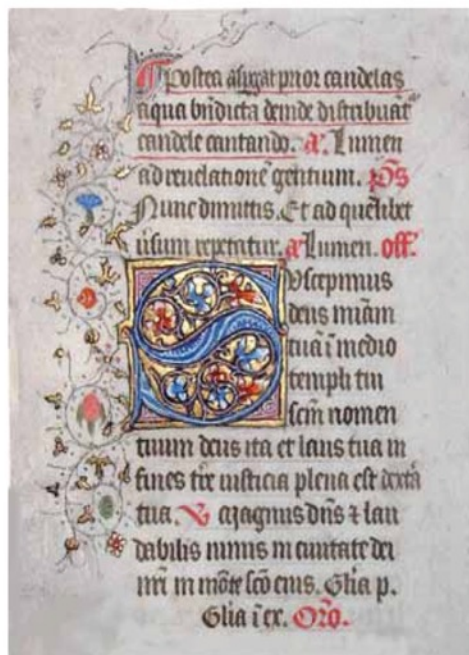 Postea aspergat prior candelas
aqua bn̄dicta deinde distribuāt᷑
candele cantando. a᷑. Lumen
ad reuelationē gentium. p̄s
Nunc dimittis. Et ad quēlibet
ūsum repetatur. a᷑ Lumen. off᷑.
Suscepimus
deus mīam
tuā ī medio
templi tui
scd̄m nomen
tuum deus ita et laus tua in
fines tr̄e iusticia plena est dext᷑a
tua. V᷑ Magnus dn̄s ⁊ lau
dabilis nimis in ciuitate dei
nr̄i in mōte scō eius. Gl̄ia p.
Gl̄ia ī ex. Or̄o.